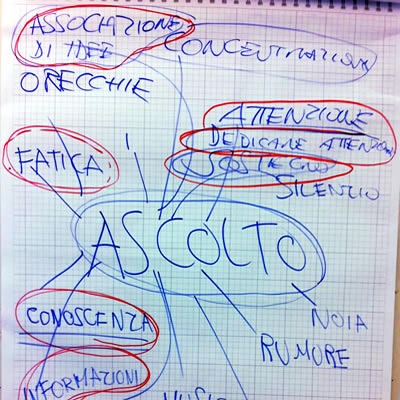 ASSOCIAZIONE
DI IDEE
CONCENTRAZIONE
ORECCHIE
ATTENZIONE
DEDICARE ATTENZIONE
SOSTEGNO
SILENZIO
FATICA
ASCOLTO
CONOSCENZA
NOIA
RUMORE
INFORMAZIONI